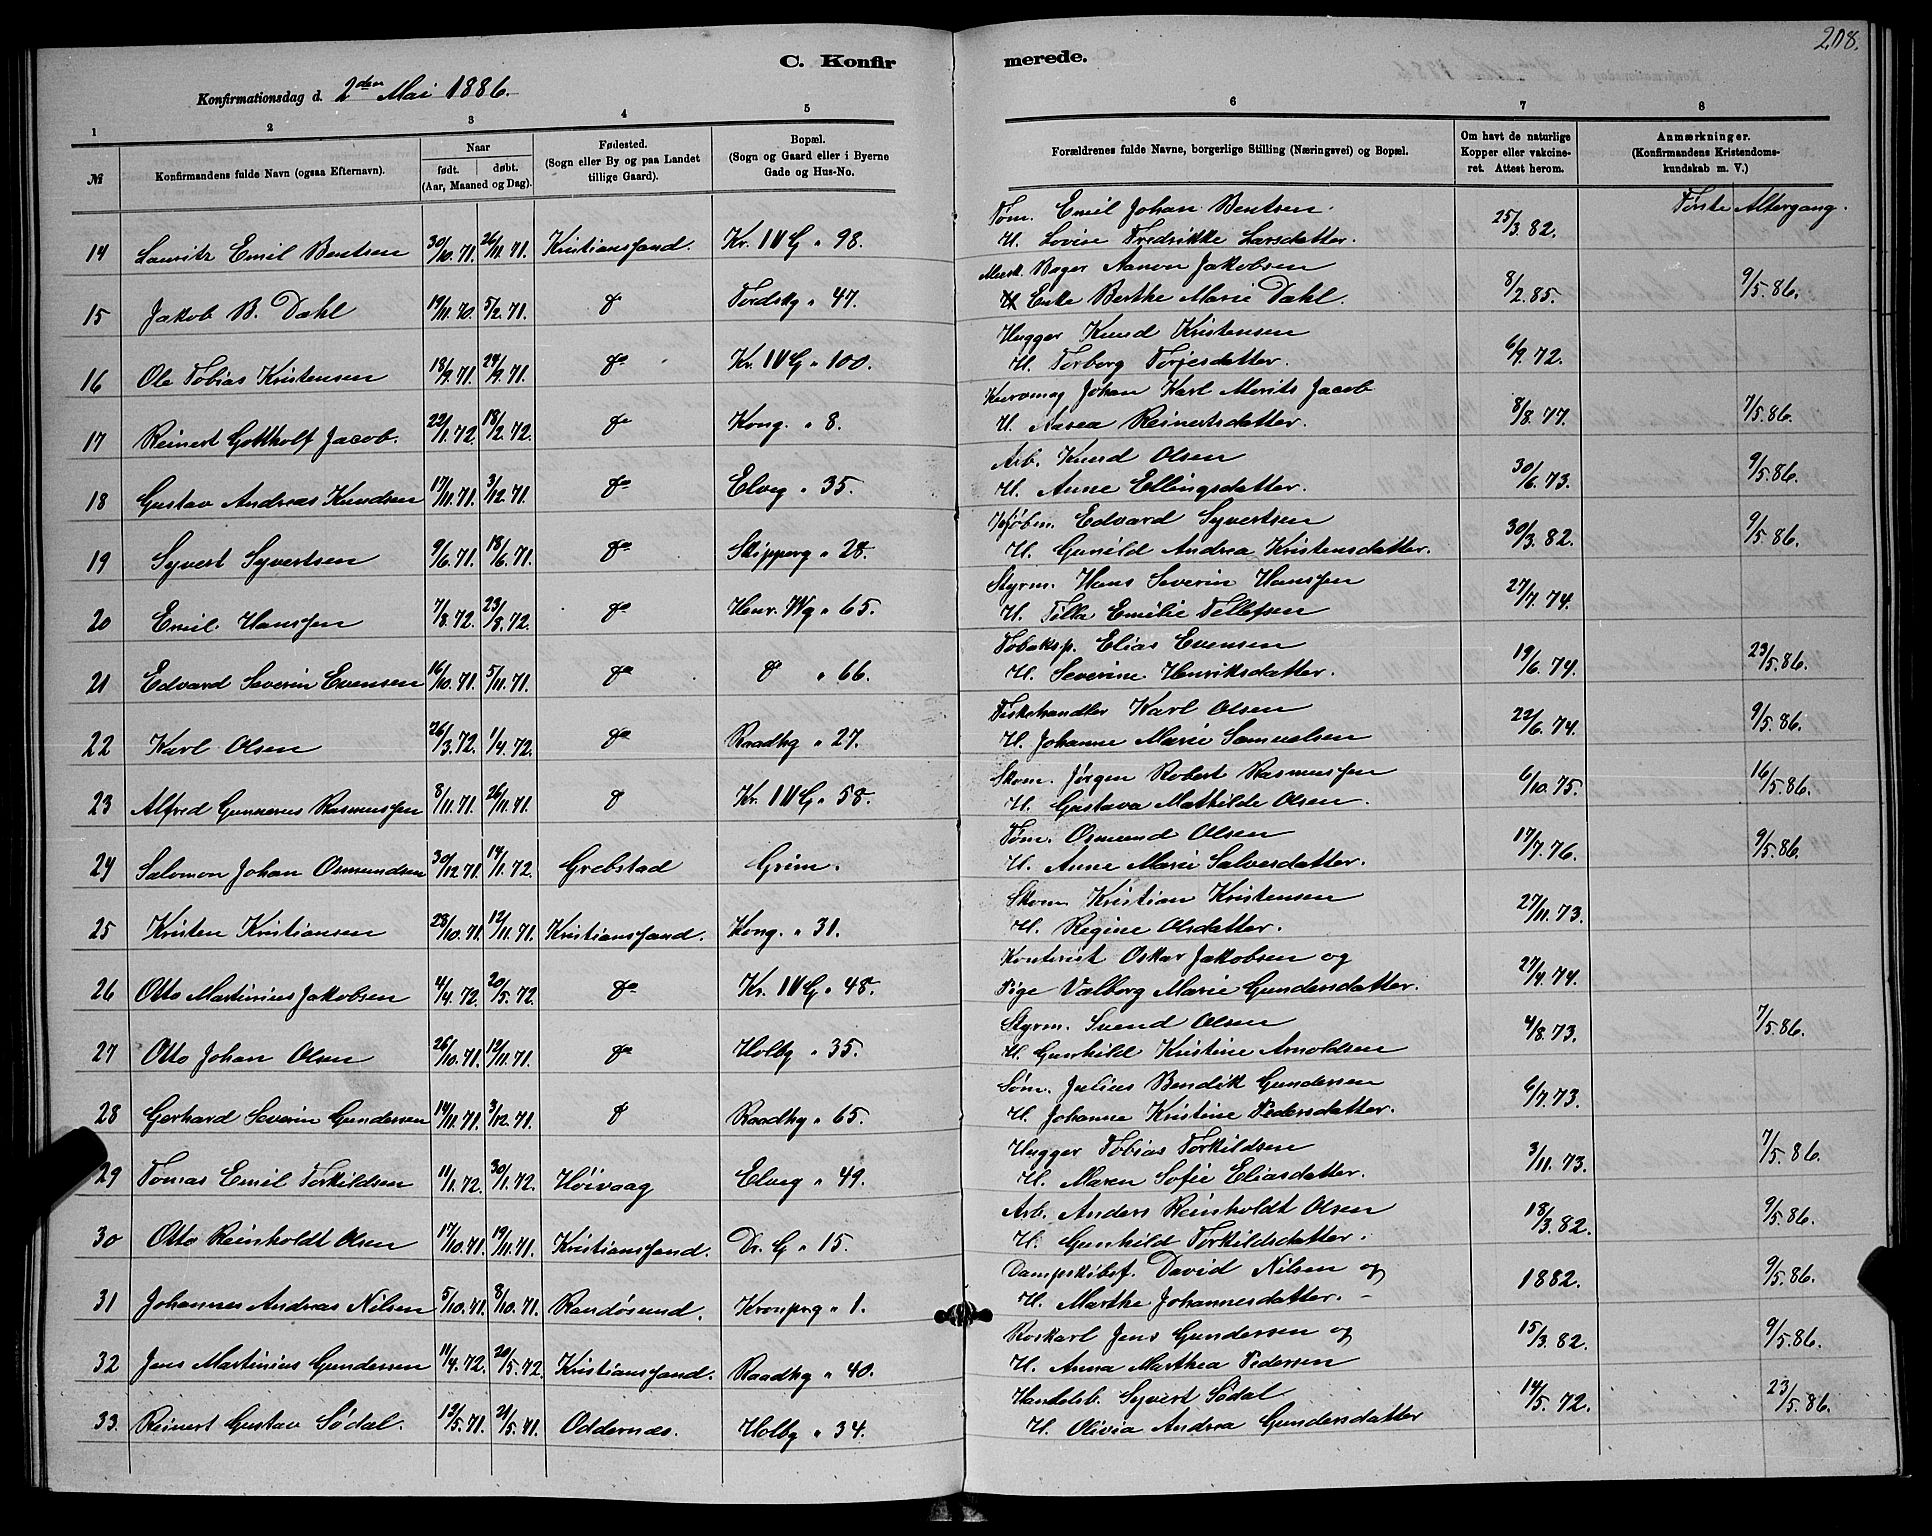 208.
C. Konfir
merede.
Konfirmationsdag d. 2den Mai 1886.
1 2 3 4 5 6 7 8
№ Konfirmandens fulde Navn (ogsaa Efternavn). Naar født. døbt. (Aar, Maaned og Dag). Fødested. (Sogn eller By og paa Landet tillige Gaard). Bopæl. (Sogn og Gaard eller i Byerne Gade og Hus-No. Forældrenes fulde Navne, borgerlige Stilling (Næringsvei) og Bopæl. Om havt de naturlige Kopper eller vakcineret. Attest herom. Anmærkninger. (Konfirmandens Kristendomskundskab m. V.)
Første Altergang.
14 Lauritz Emil Bentsen 30/10.71. 26/11.71. Kristianssand. Kr. IV G " 98. Tøm. Emil Johan Bentsen. 25/3.82.
H. Lovise Fredrikke Larsdatter.
15 Jakob B. Dahl 19/11.70. 5/2.71. do Tordskg " 47. Mesk. Bager Aanon Jakobsen 8/2.85. 9/5.86.
Enke Berthe Marie Dahl.
16 Ole Tobias Kristensen 18/9.71. 24/9.71. do Kr. IV G " 100. Hugger Knud Kristensen 6/9.72.
H. Torborg Torjesdatter.
17 Reinert Gottholf Jacob. 22/1.72. 18/2.72. do Kong. " 8. Kurvmag Johan Karl Morits Jacob 8/8.77. 7/5.86.
H. Aasea Reinertsdatter.
18 Gustav Andreas Knudsen 17/11.71. 3/12.71. do Elveg " 35. Arb. Knud Olsen 30/6.73. 9/5.86.
H. Anne Ellingsdatter.
19 Syvert Syvertsen 9/6.71. 18/6.71. do Skipperg " 28. Kjøbm. Edvard Syvertsen 30/3.82. 9/5.86.
H. Gunild Andrea Kristensdatter.
20 Emil Hanssen 7/8.72. 23/8.72. do Henr. Wg " 65. Styrm. Hans Severin Hanssen 27/7.74.
H. Tilla Emilie Tellefsen
21 Edvard Severin Evensen 16/10.71. 5/11.71. do do " 66. Tobaksp. Elias Evensen 19/6.74. 23/5.86.
H. Severine Henriksdatter.
22 Karl Olsen 26/3.72. 1/4.72. do Raadhg " 27. Fiskehandler Karl Olsen 22/6.74. 9/5.86.
H. Johanne Marie Samuelsen
23 Alfred Gunnerus Rasmussen 8/11.71. 26/11.71. do Kr. IV G " 58. Skom. Jørgen Robert Rasmussen 6/10.75. 16/5.86.
H. Gustava Mathilde Olsen.
24 Salomon Johan Osmundsen 30/12.71. 14/1.72. Grebstad Grim. Tøm. Osmund Olsen 17/7.76. 9/5.86.
H. Anne Marie Salvesdatter.
25 Kristen Kristiansen 28/10.71. 12/11.71. Kristianssand. Kong. " 31. Skom. Kristian Kristensen 27/11.73.
H. Regine Olsdatter.
26 Otto Martinius Jakobsen 4/4.72. 20/5.72. do Kr. IV G " 48. Kontorist Oskar Jakobsen og 27/4.74.
Pige Valborg Marie Gundersdatter.
27 Otto Johan Olsen 26/10.71. 12/11.71. do Holbg " 35. Styrm. Svend Olsen 4/8.73. 7/5.86.
H. Gunhild Kristine Arnoldsen
28 Gerhard Severin Gundersen 14/11.71. 3/12.71. do Raadhg " 65. Søm. Julius Bendik Gundersen 6/7.73.
H. Johanne Kristine Pedersdatter.
29 Tomas Emil Torkildsen 11/1.72. 30/1.72. Høivaag Elveg " 49. Hugger Tobias Torkildsen 3/11.73. 7/5.86.
H. Maren Sofie Eliasdatter.
30 Otto Reinholdt Olsen 17/10.71. 19/11.71. Kristianssand. Dr. G " 15. Arb. Anders Reinholdt Olsen 18/3.82. 9/5.86.
H. Gunhild Torkildsdatter.
31 Johannes Andreas Nilsen 5/10.71. 8/10.71. Randøsund. Kronprg " 1. Dampskibsf. David Nilsen og 1882. 9/5.86.
H. Marthe Johannesdatter.
32 Jens Martinius Gundersen 11/4.72. 20/5.72. Kristianssand. Raadhg " 40. Roskarl Jens Gundersen og 15/3.82. 9/5.86.
H. Anna Marthea Pedersen
33. Reinert Gustav Sødal. 12/5.71. 21/5.71. Oddernæs. Holbg " 34. Handelsb. Syvert Sødal 14/5.72. 23/5.86.
H. Olivia Andrea Gundersdatter